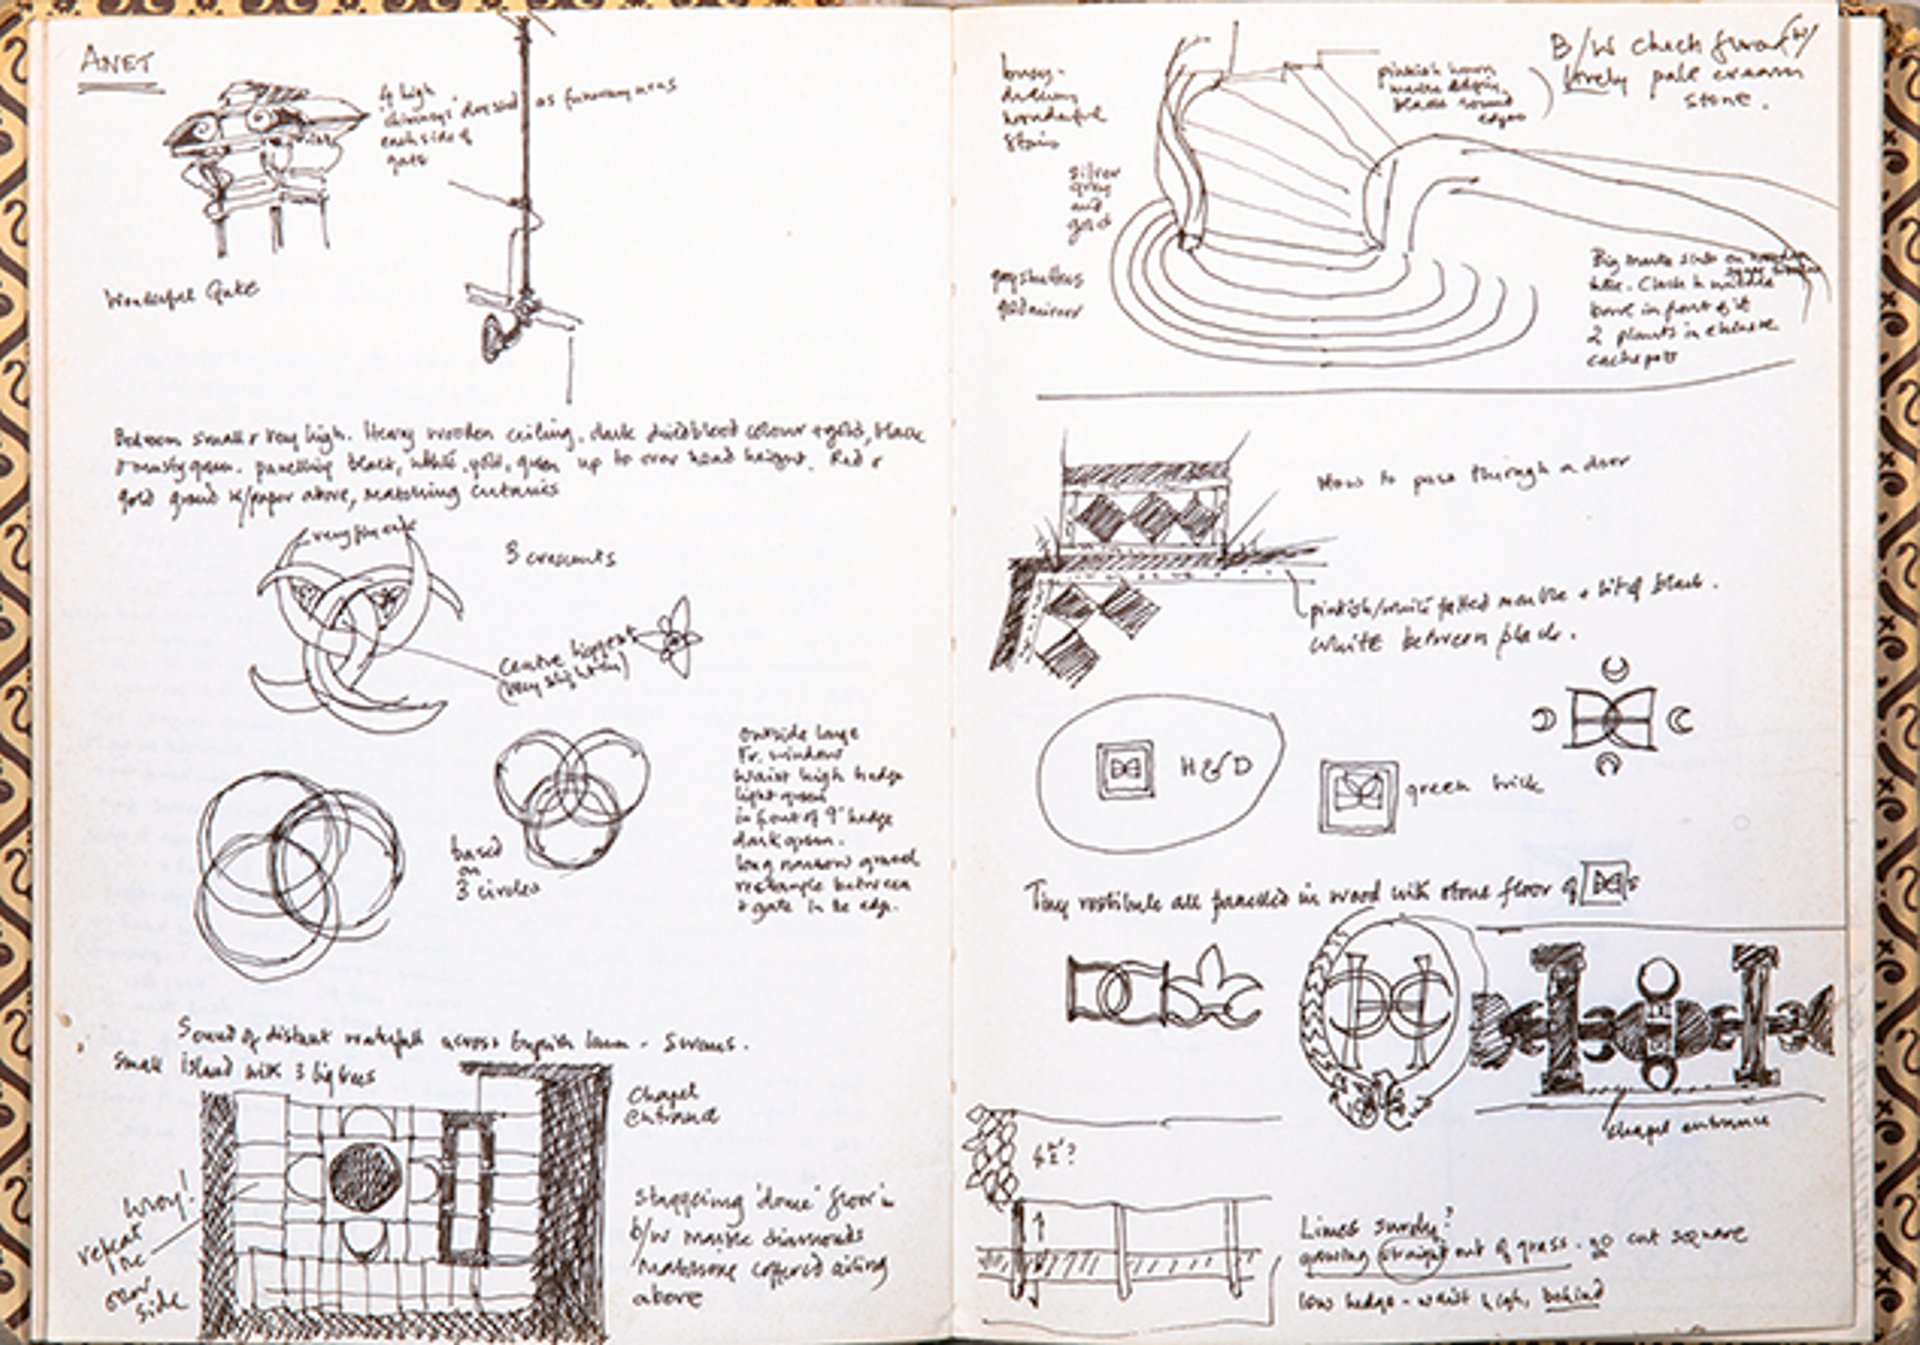 ANET
4 high
"chimneys" dressed as funerary urns
each side of
gate
Wonderful Gate
Bedroom small & very high. Heavy wooden ceiling, dark dried blood colour & gold, black
panelling black, white, gold, green up to over head height. Red &
gold above, matching curtains
3 crescents
Centre biggest
(very slightly)
based
on
3 circles
outside large
Fr. window
Waist high hedge
light green
in front of 9" hedge
dark green.
long narrow gravel
rectangle between
& gate in the edge.
Sound of distant waterfall across English lawn - Swans.
Small island with 3 big trees
Chapel
entrance
wrong!
repeat
the
other
side
staggering 'dome' floor in
b/w marble diamonds
matching coffered ceiling
above
B/W check
lovely pale cream
stone.
wonderful
stairs
silver
grey
and
gold
grey shutters
gold mirror
pinkish
black round
edges
Big marble slab on wooden
in middle
in front of it
2 plants in
cachepots
How to pass through a door
pinkish/white marble + bit of black.
White between black.
H & D
green brick
Tiny vestibule all panelled in wood with stone floor of
chapel entrance
Limes surely?
growing straight out of grass - no cut square
low hedge - waist high, behind